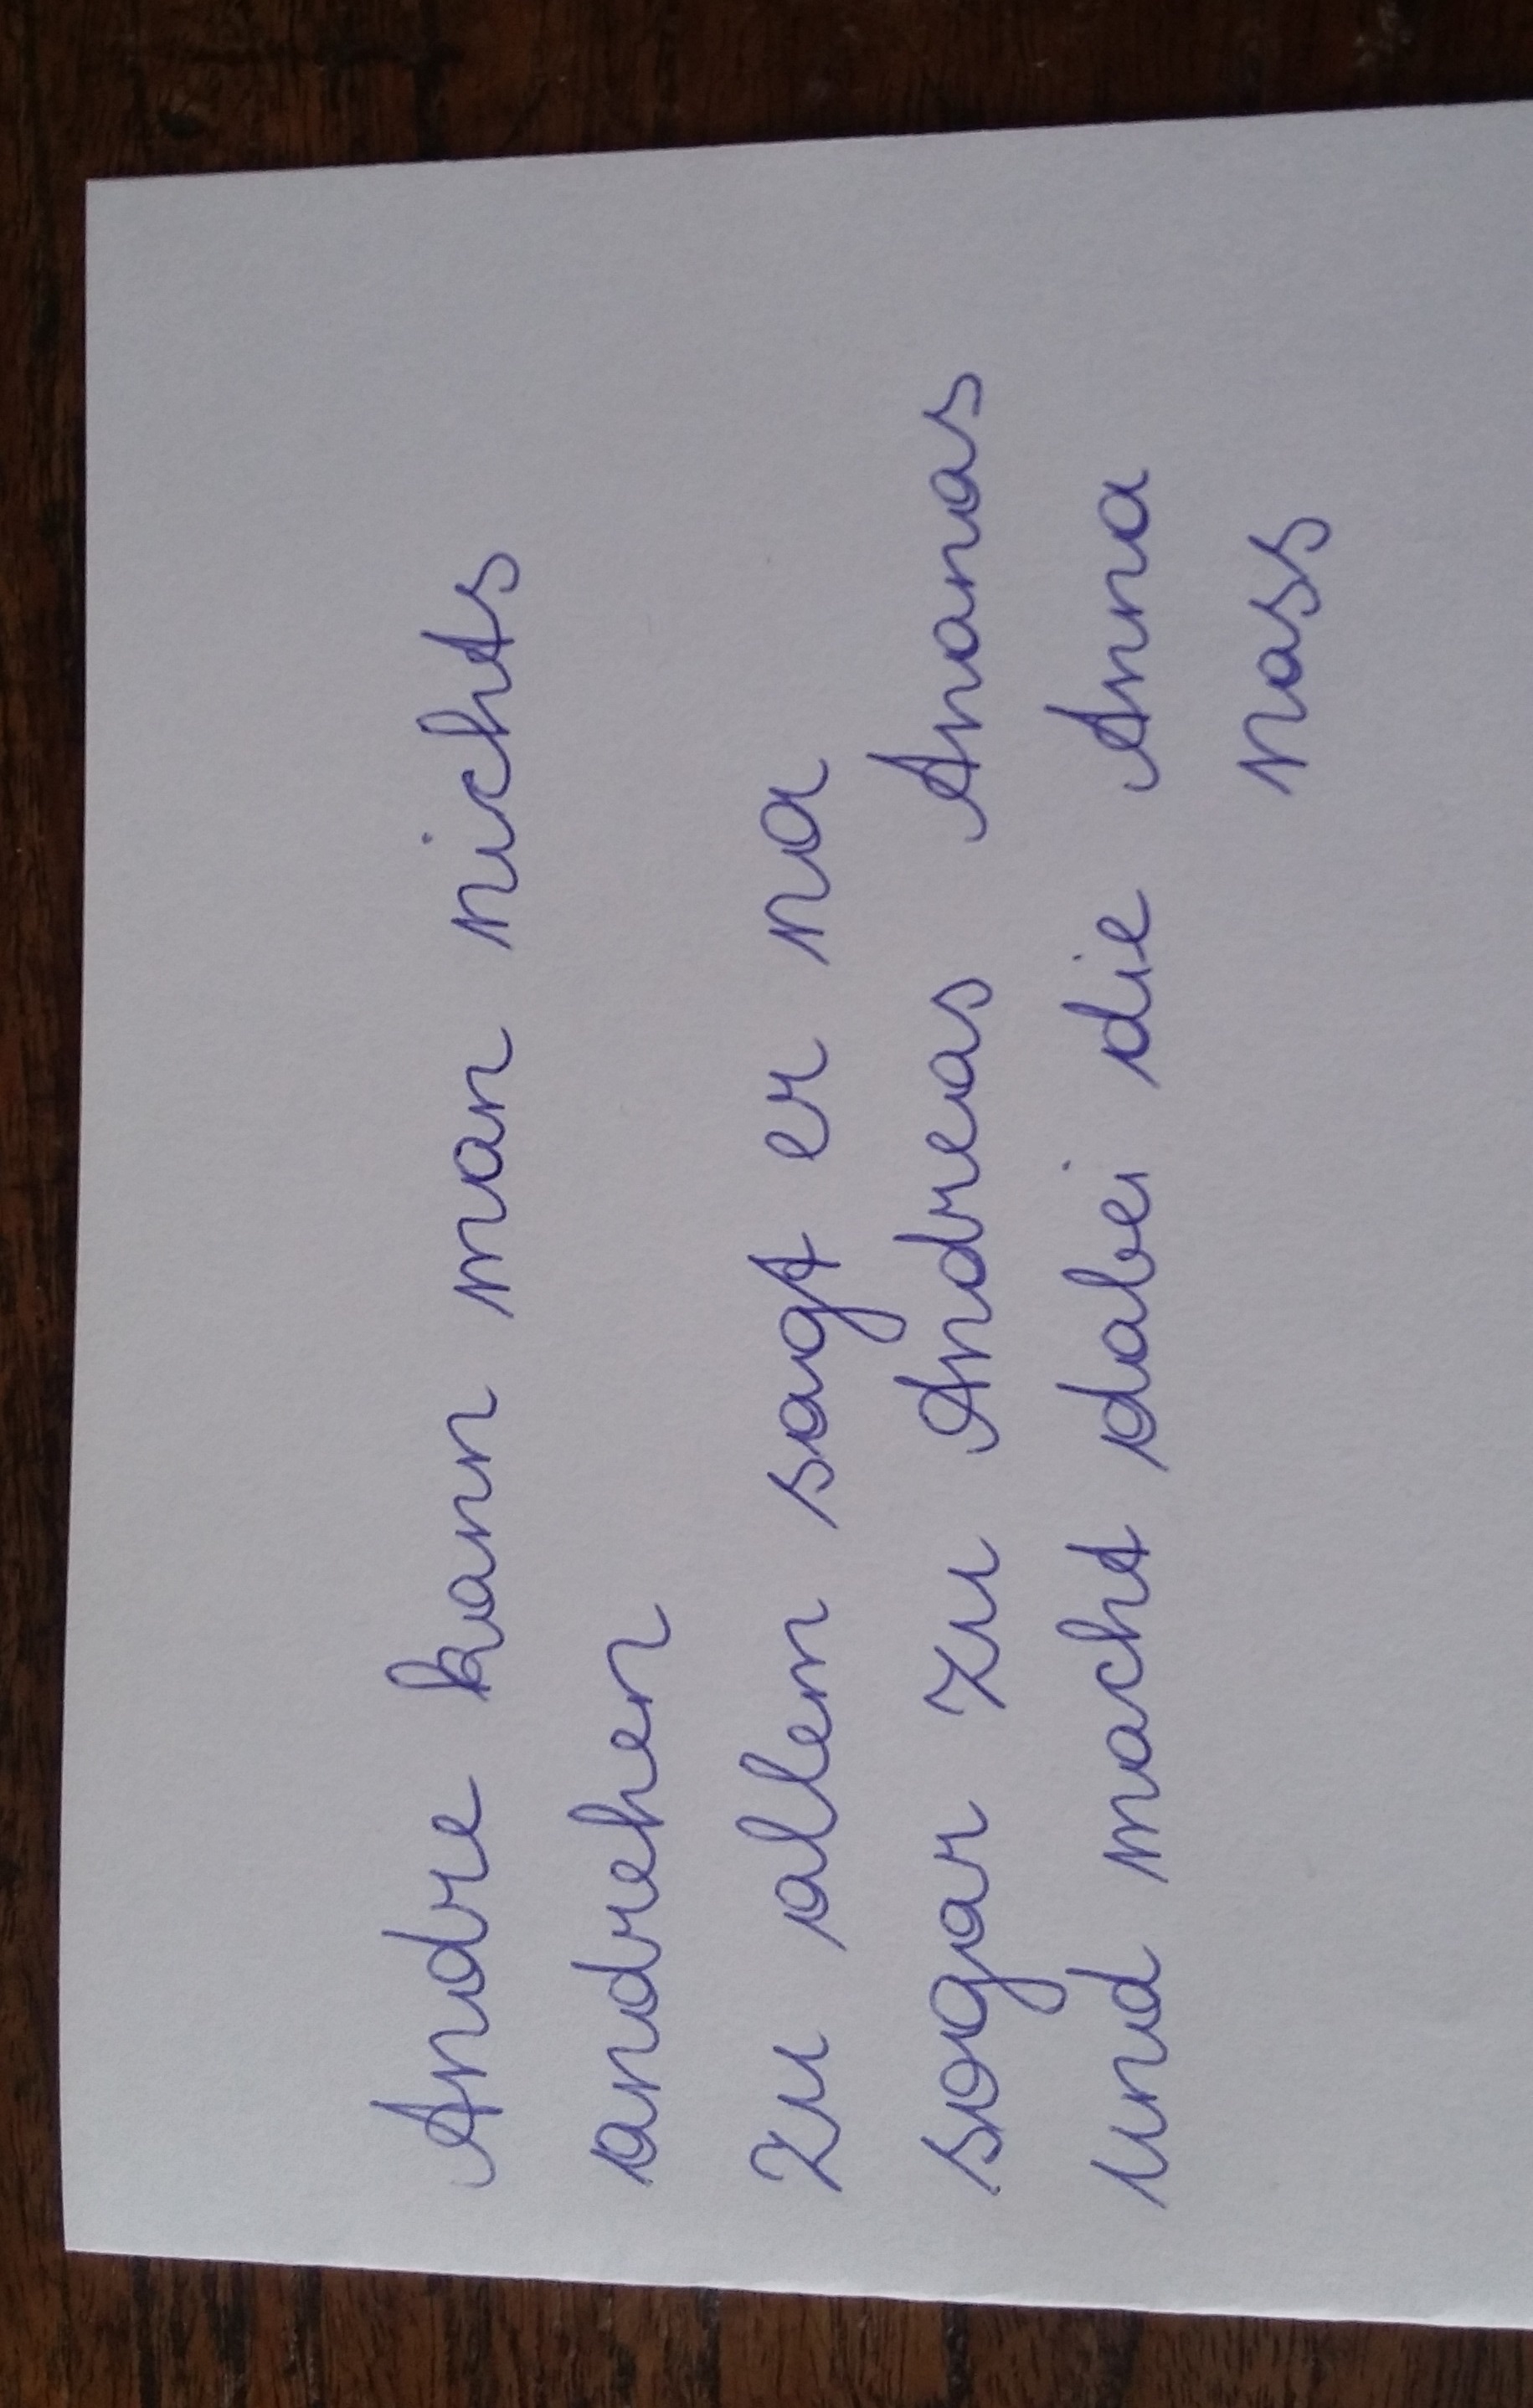 Andre kann man nichts
andrehen
zu allem sagt er na
sogar zu Andreas Ananas
und macht dabei die Anna
nass